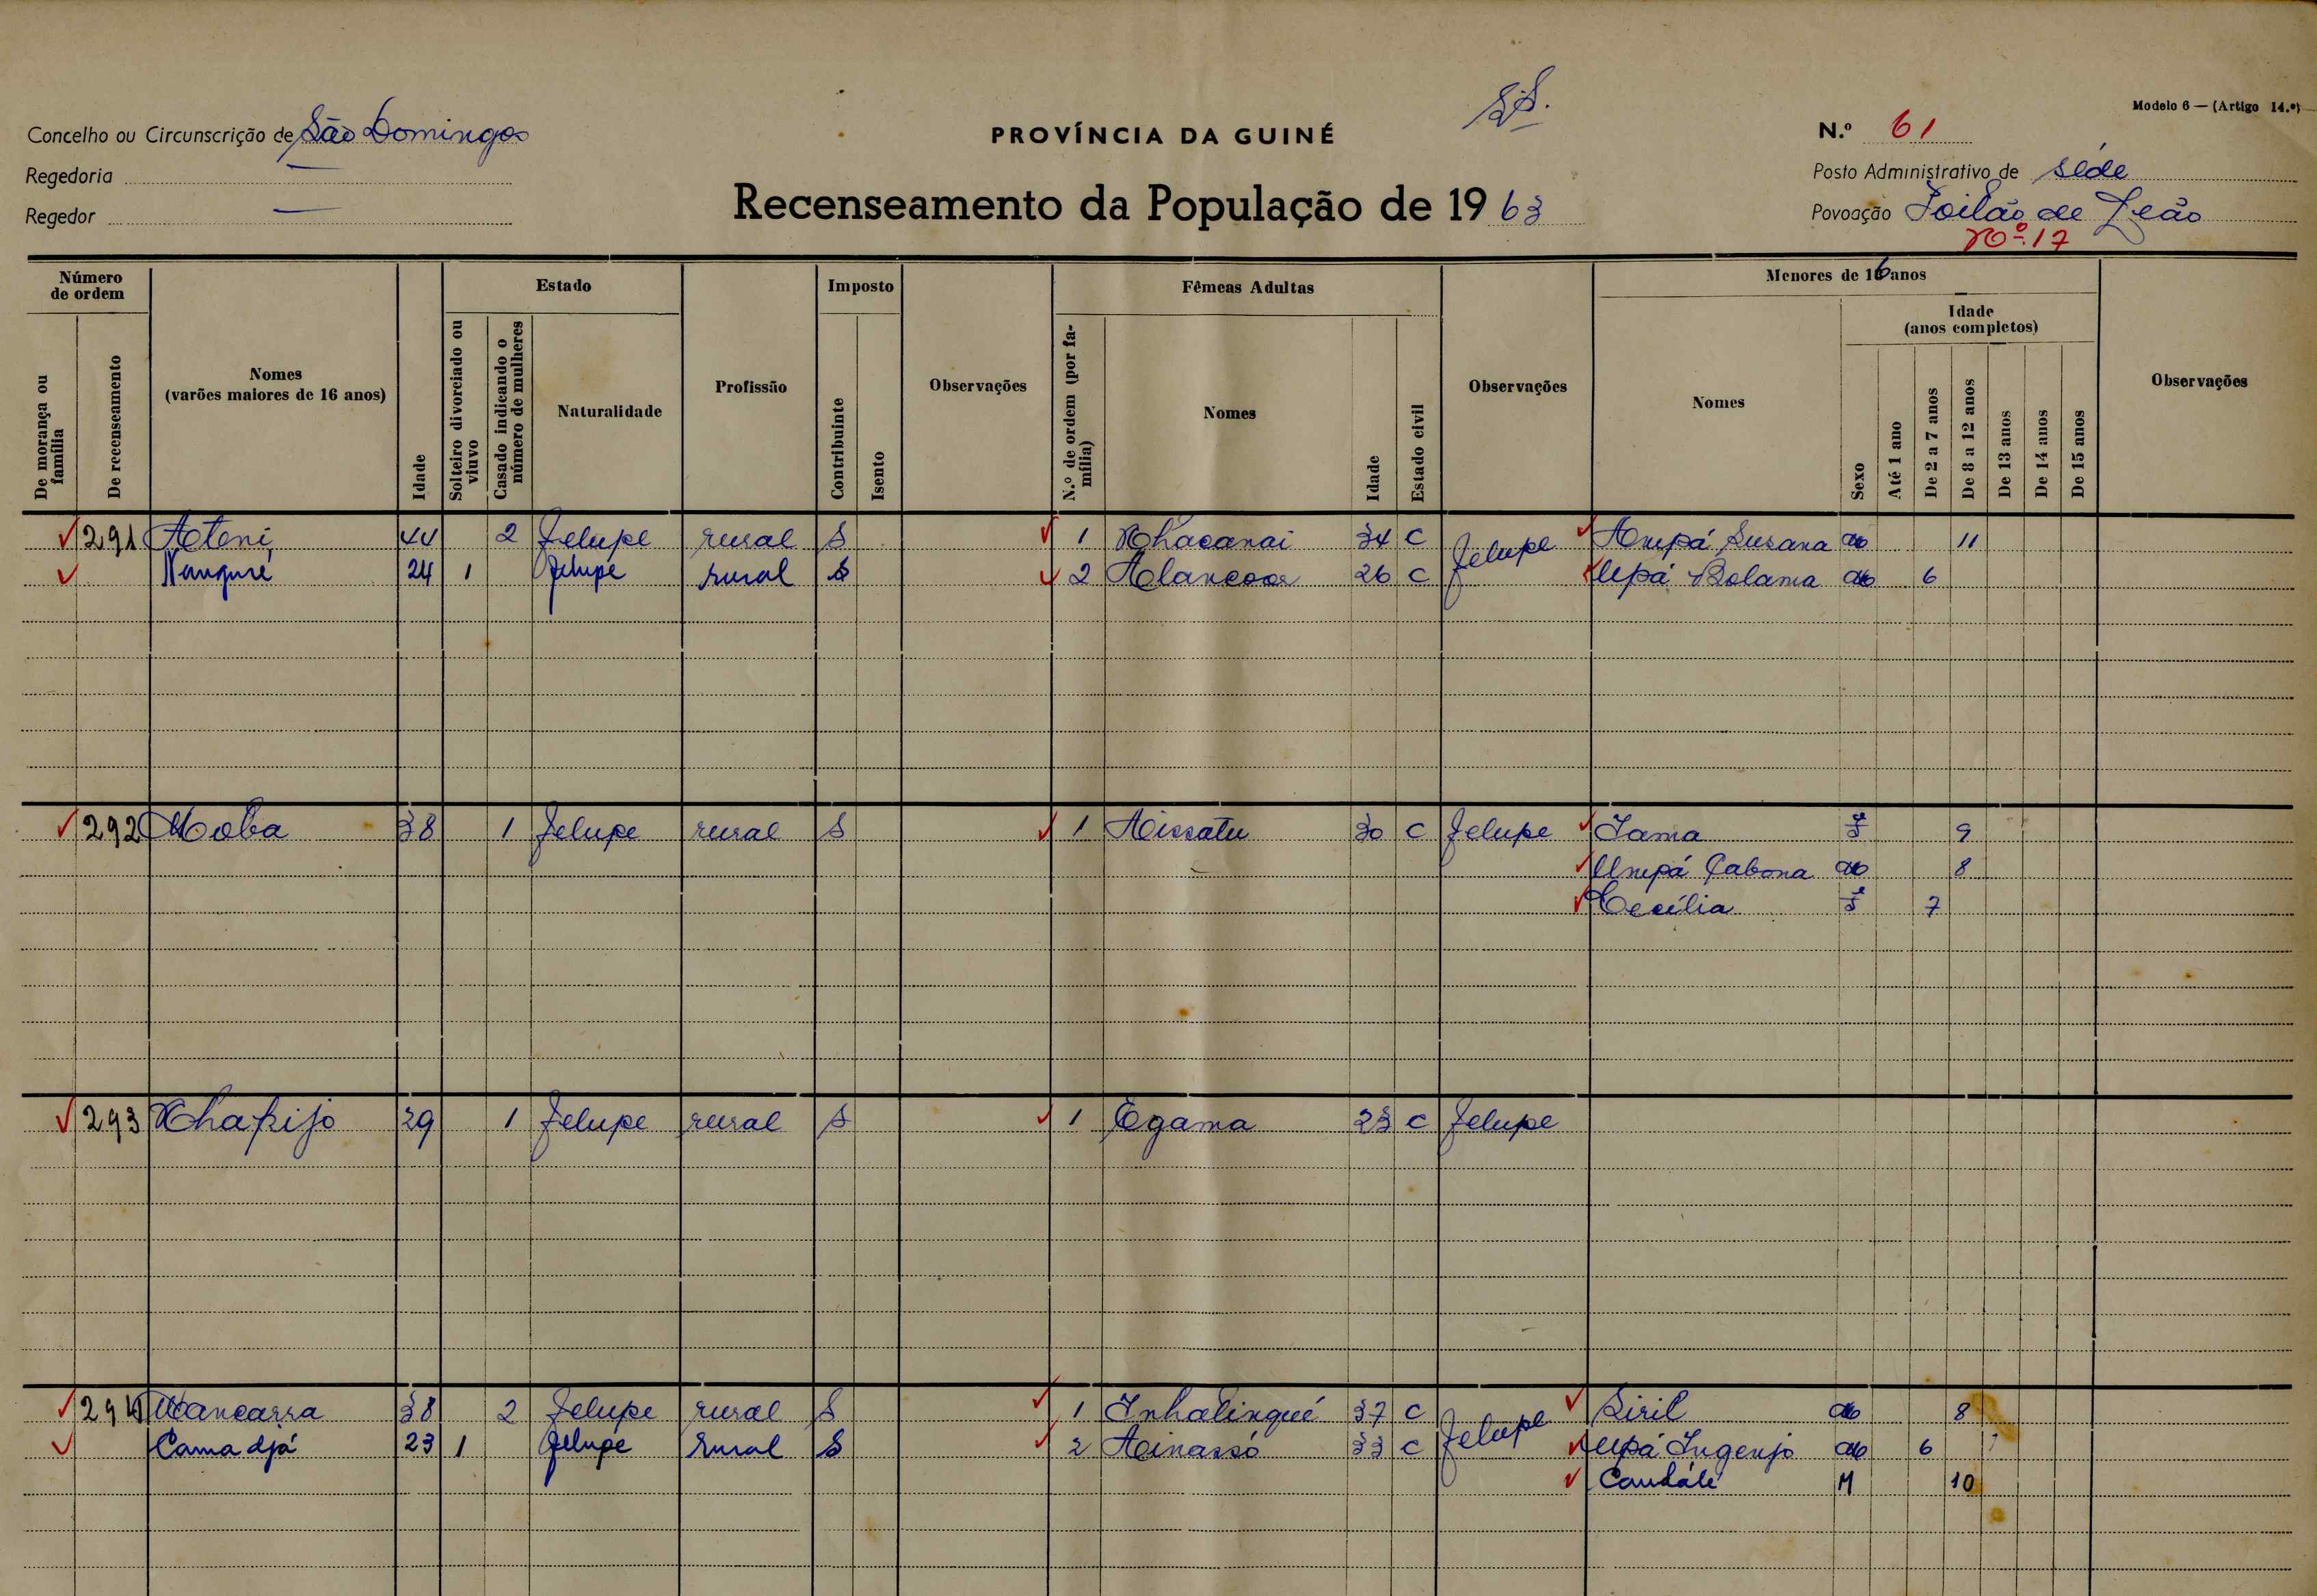 Modelo 6 — (Artigo 14.º)
Concelho ou Circunscrição de São Domingos
PROVÍNCIA DA GUINÉ
N.º 61
Regedoria —
Posto Administrativo de Séde
Regedor —
Recenseamento da População de 1963
Povoação Poilão de Leão
nº 17
Número de ordem
Estado
Imposto
Fêmeas Adultas
Menores de 16 anos
Idade
(anos completos)
De morança ou família
De recenseamento
Nomes
(varões maiores de 16 anos)
Idade
Solteiro divorciado ou viuvo
Casado indicando o número de mulheres
Naturalidade
Profissão
Contribuinte
Isento
Observações
N.º de ordem (por família)
Nomes
Idade
Estado civil
Observações
Nomes
Sexo
Até 1 ano
De 2 a 7 anos
De 8 a 12 anos
De 13 anos
De 14 anos
De 15 anos
Observações
291 Ateni 44 2 Felupe rural S 1 Nhacanai 34 C Felupe Ampá Susana M 11
Nanguré 24 1 Felupe rural S 2 26 C Upá Bolama M 6
292 Moba 38 1 Felupe rural S 1 Aissatu 30 C Felupe Jama F 9
Umpá Cabona M 8
Cecília F 7
293 Nhakijo 29 1 Felupe rural S 1 Egama 23 C Felupe
294 Mancarra 38 2 Felupe rural S 1 Inhalingué 37 C Felupe Siril M 8
Cama djá 23 1 Felupe rural S 2 Ainassó 33 C Upá Ingenjo M 6
M 10